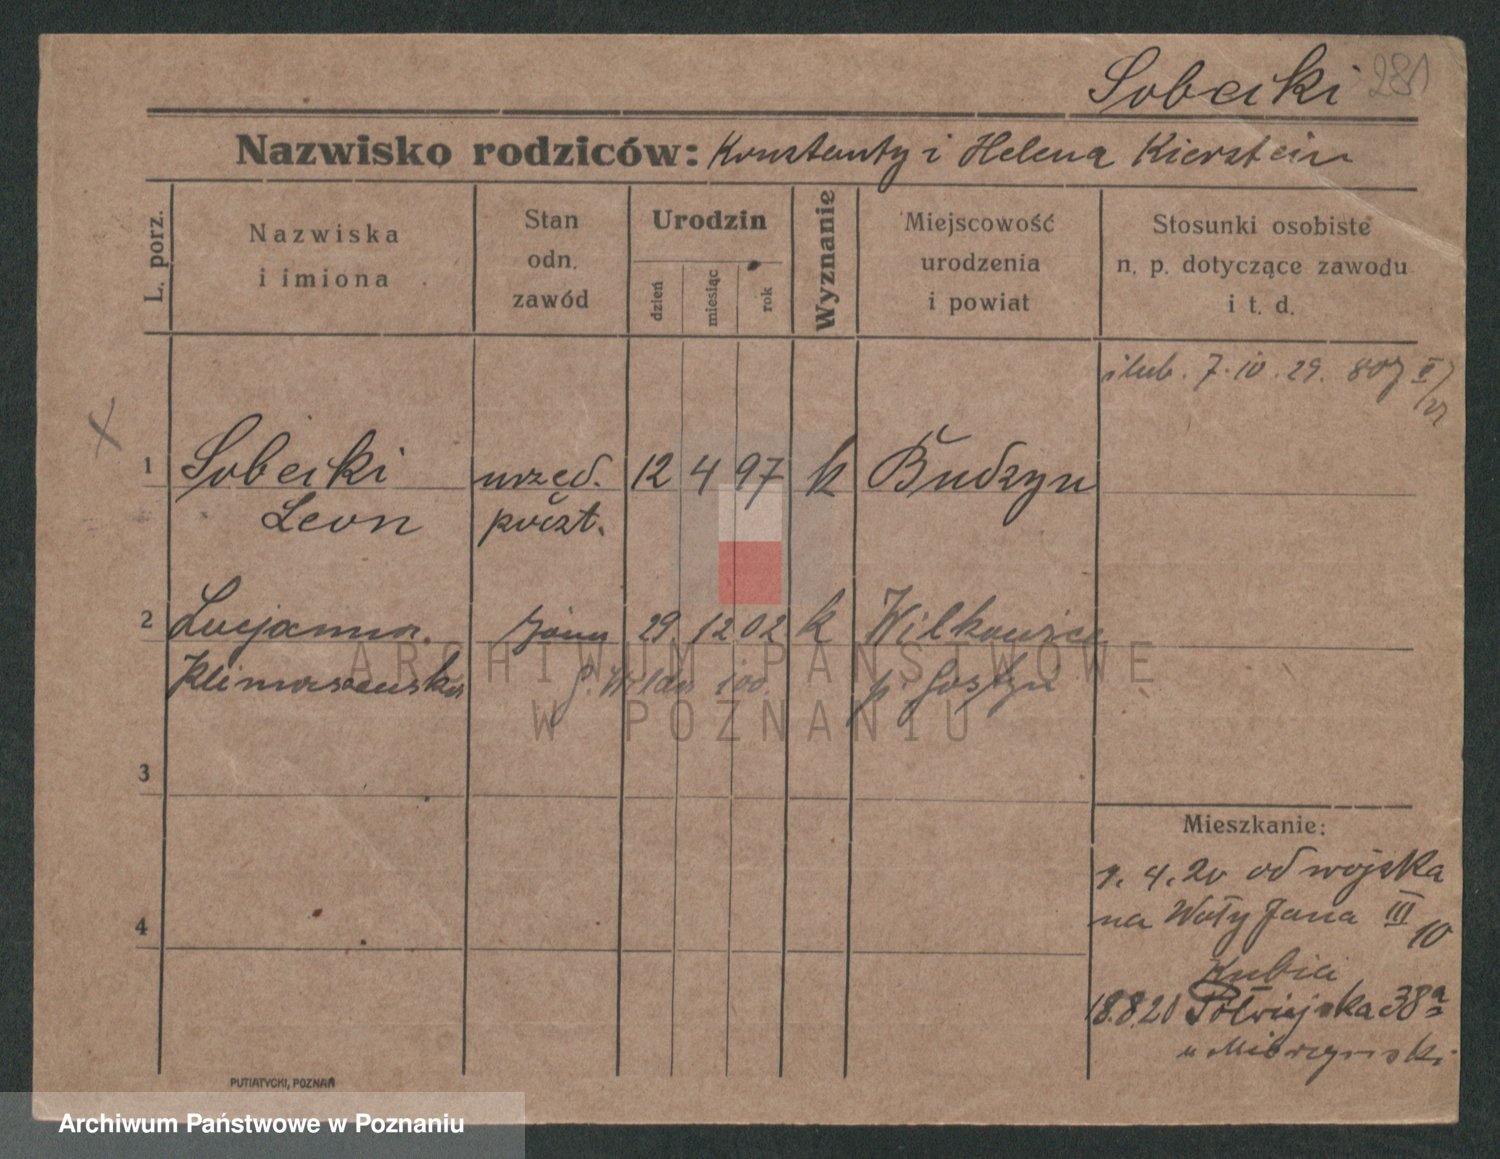 Sobecki 281
Nazwisko rodziców: Konstanty i Helena Kierstein
L. porz.
Nazwiska
i imiona
Stan
odn.
zawód
Urodzin
dzień
miesiąc
rok
Wyznanie
Miejscowość
urodzenia
i powiat
Stosunki osobiste
n. p. dotyczące zawodu
i t. d.
ślub. 7. 10. 29. 807 II/
1 Sobecki urzęd. 12 4 97 k Budzyn
Leon poczt.
2 Lucjanna. żona 29. 12 02 k Wilkowice
Klimaszewska p. Gostyn
3
4
Mieszkanie:
1. 4. 20 od wojska
na Wały Jana III 10
18.8.20 Półwiejska 38a
u
PUTIATYCKI, POZNAŃ
ARCHIWUM PAŃSTWOWE
W POZNANIU
Archiwum Państwowe w Poznaniu